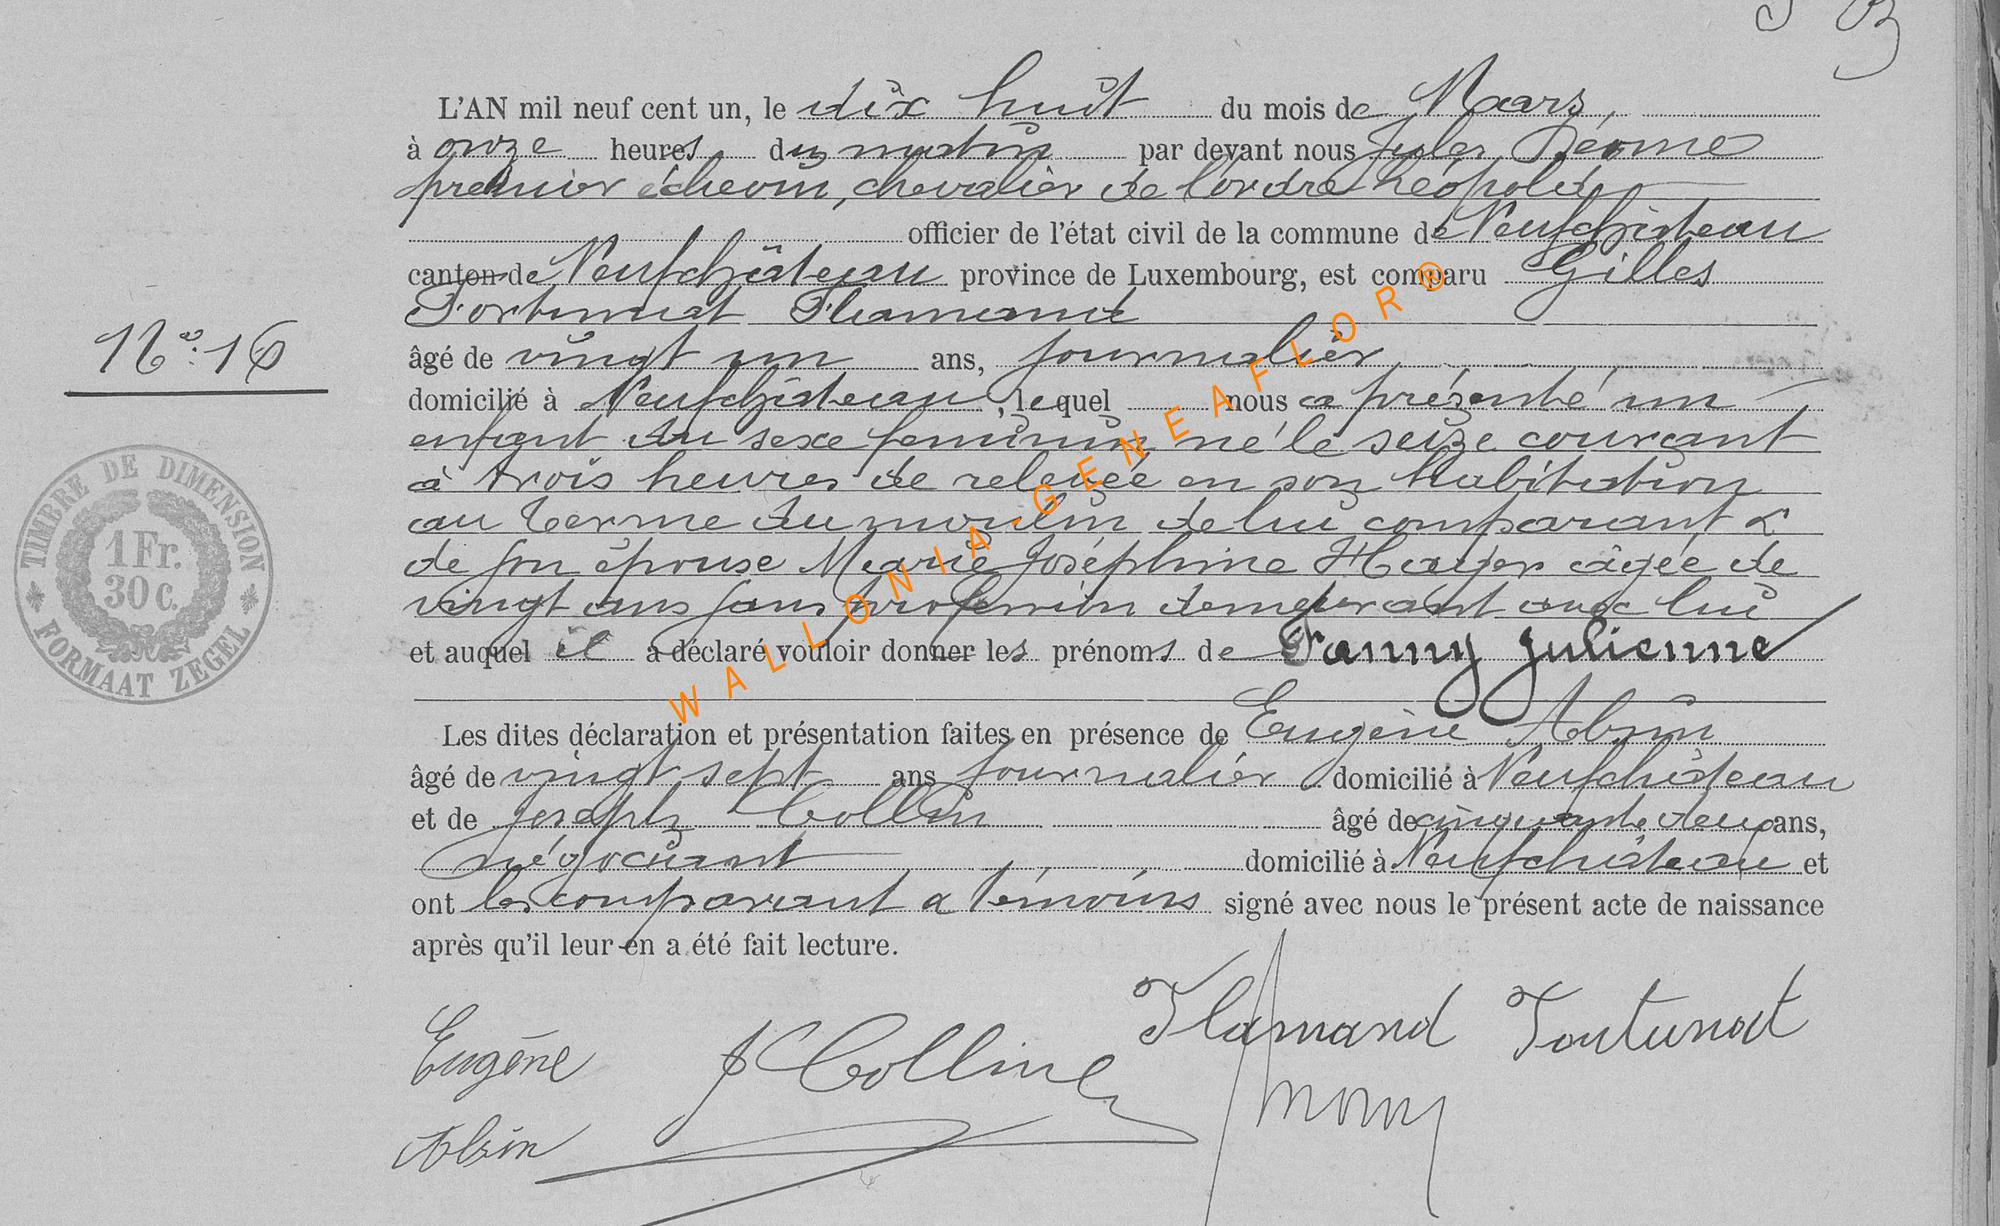 L'AN mil neuf cent un, le dix huit du mois de Mars,
à onze heures du matin par devant nous Jules
premier échevin, chevalier de l'ordre Léopold
officier de l'état civil de la commune de Neufchâteau
canton de Neufchâteau province de Luxembourg, est comparu Gilles
Fortunat Flamand
âgé de vingt un ans, journalier
N° 16
domicilié à Neufchâteau, lequel nous a présenté un
enfant du sexe feminin né le seize courant
à trois heures de relevée en son habitation
au Terme du moulin de lui comparant &
de son épouse Marie Joséphine âgée de
vingt ans sans profession demeurant avec lui
et auquel il a déclaré vouloir donner les prénoms de Fanny Julienne
Les dites déclaration et présentation faites en présence de Eugène Absin
âgé de vingt sept ans journalier domicilié à Neufchâteau
et de Joseph Collin âgé de cinquante deux ans,
négociant domicilié à Neufchâteau et
ont les comparant & témoins signé avec nous le présent acte de naissance
après qu'il leur en a été fait lecture.
Flamand Fortunat
Eugène J Colline
Absin
TIMBRE DE DIMENSION
1 Fr.
30 c.
FORMAAT ZEGEL
WALLONIA-GENEAFLOR®